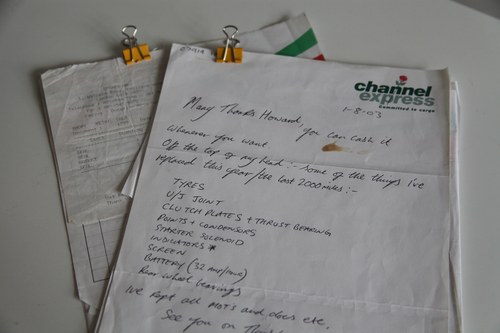 channel
express
Committed to cargo
1-8-03
Many Thanks Howard, you can cash it
Whenever you want.
Off the top of my head :- some of the things i've
replaced this year/the last 2000 miles :-
TYRES
U/J JOINT
CLUTCH PLATES + THRUST BEARING
POINTS + CONDENSORS
STARTER SOLENOID
INDICATORS
SCREEN
BATTERY (32 Amp/hour)
Rear wheel bearings
ive kept all MOTs and docs etc,
See you on